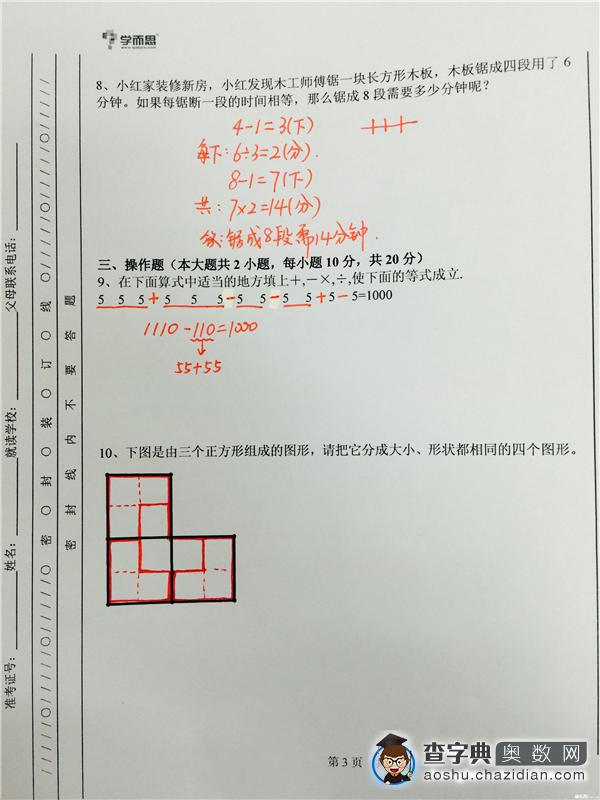 学而思
8、小红家装修新房，小红发现木工师傅锯一块长方形木板，木板锯成四段用了 6
分钟。如果每锯断一段的时间相等，那么锯成 8 段需要多少分钟呢？
4-1=3(下)
每下：6÷3=2(分).
8-1=7(下)
共：7×2=14(分)
答：锯成8段需14分钟.
三、操作题（本大题共 2 小题，每小题 10 分，共 20 分）
9、在下面算式中适当的地方填上+,－×,÷,使下面的等式成立.
5 5 5 + 5 5 5 - 5 5 - 5 5 + 5 - 5=1000
1110-110=1000
55+55
10、下图是由三个正方形组成的图形，请把它分成大小、形状都相同的四个图形。
准考证号：
姓名：
就读学校：
父母联系电话：
密 封 装 订 线
密 封 线 内 不 要 答 题
第 3 页
查字典 奥数网
aoshu.chazidian.com